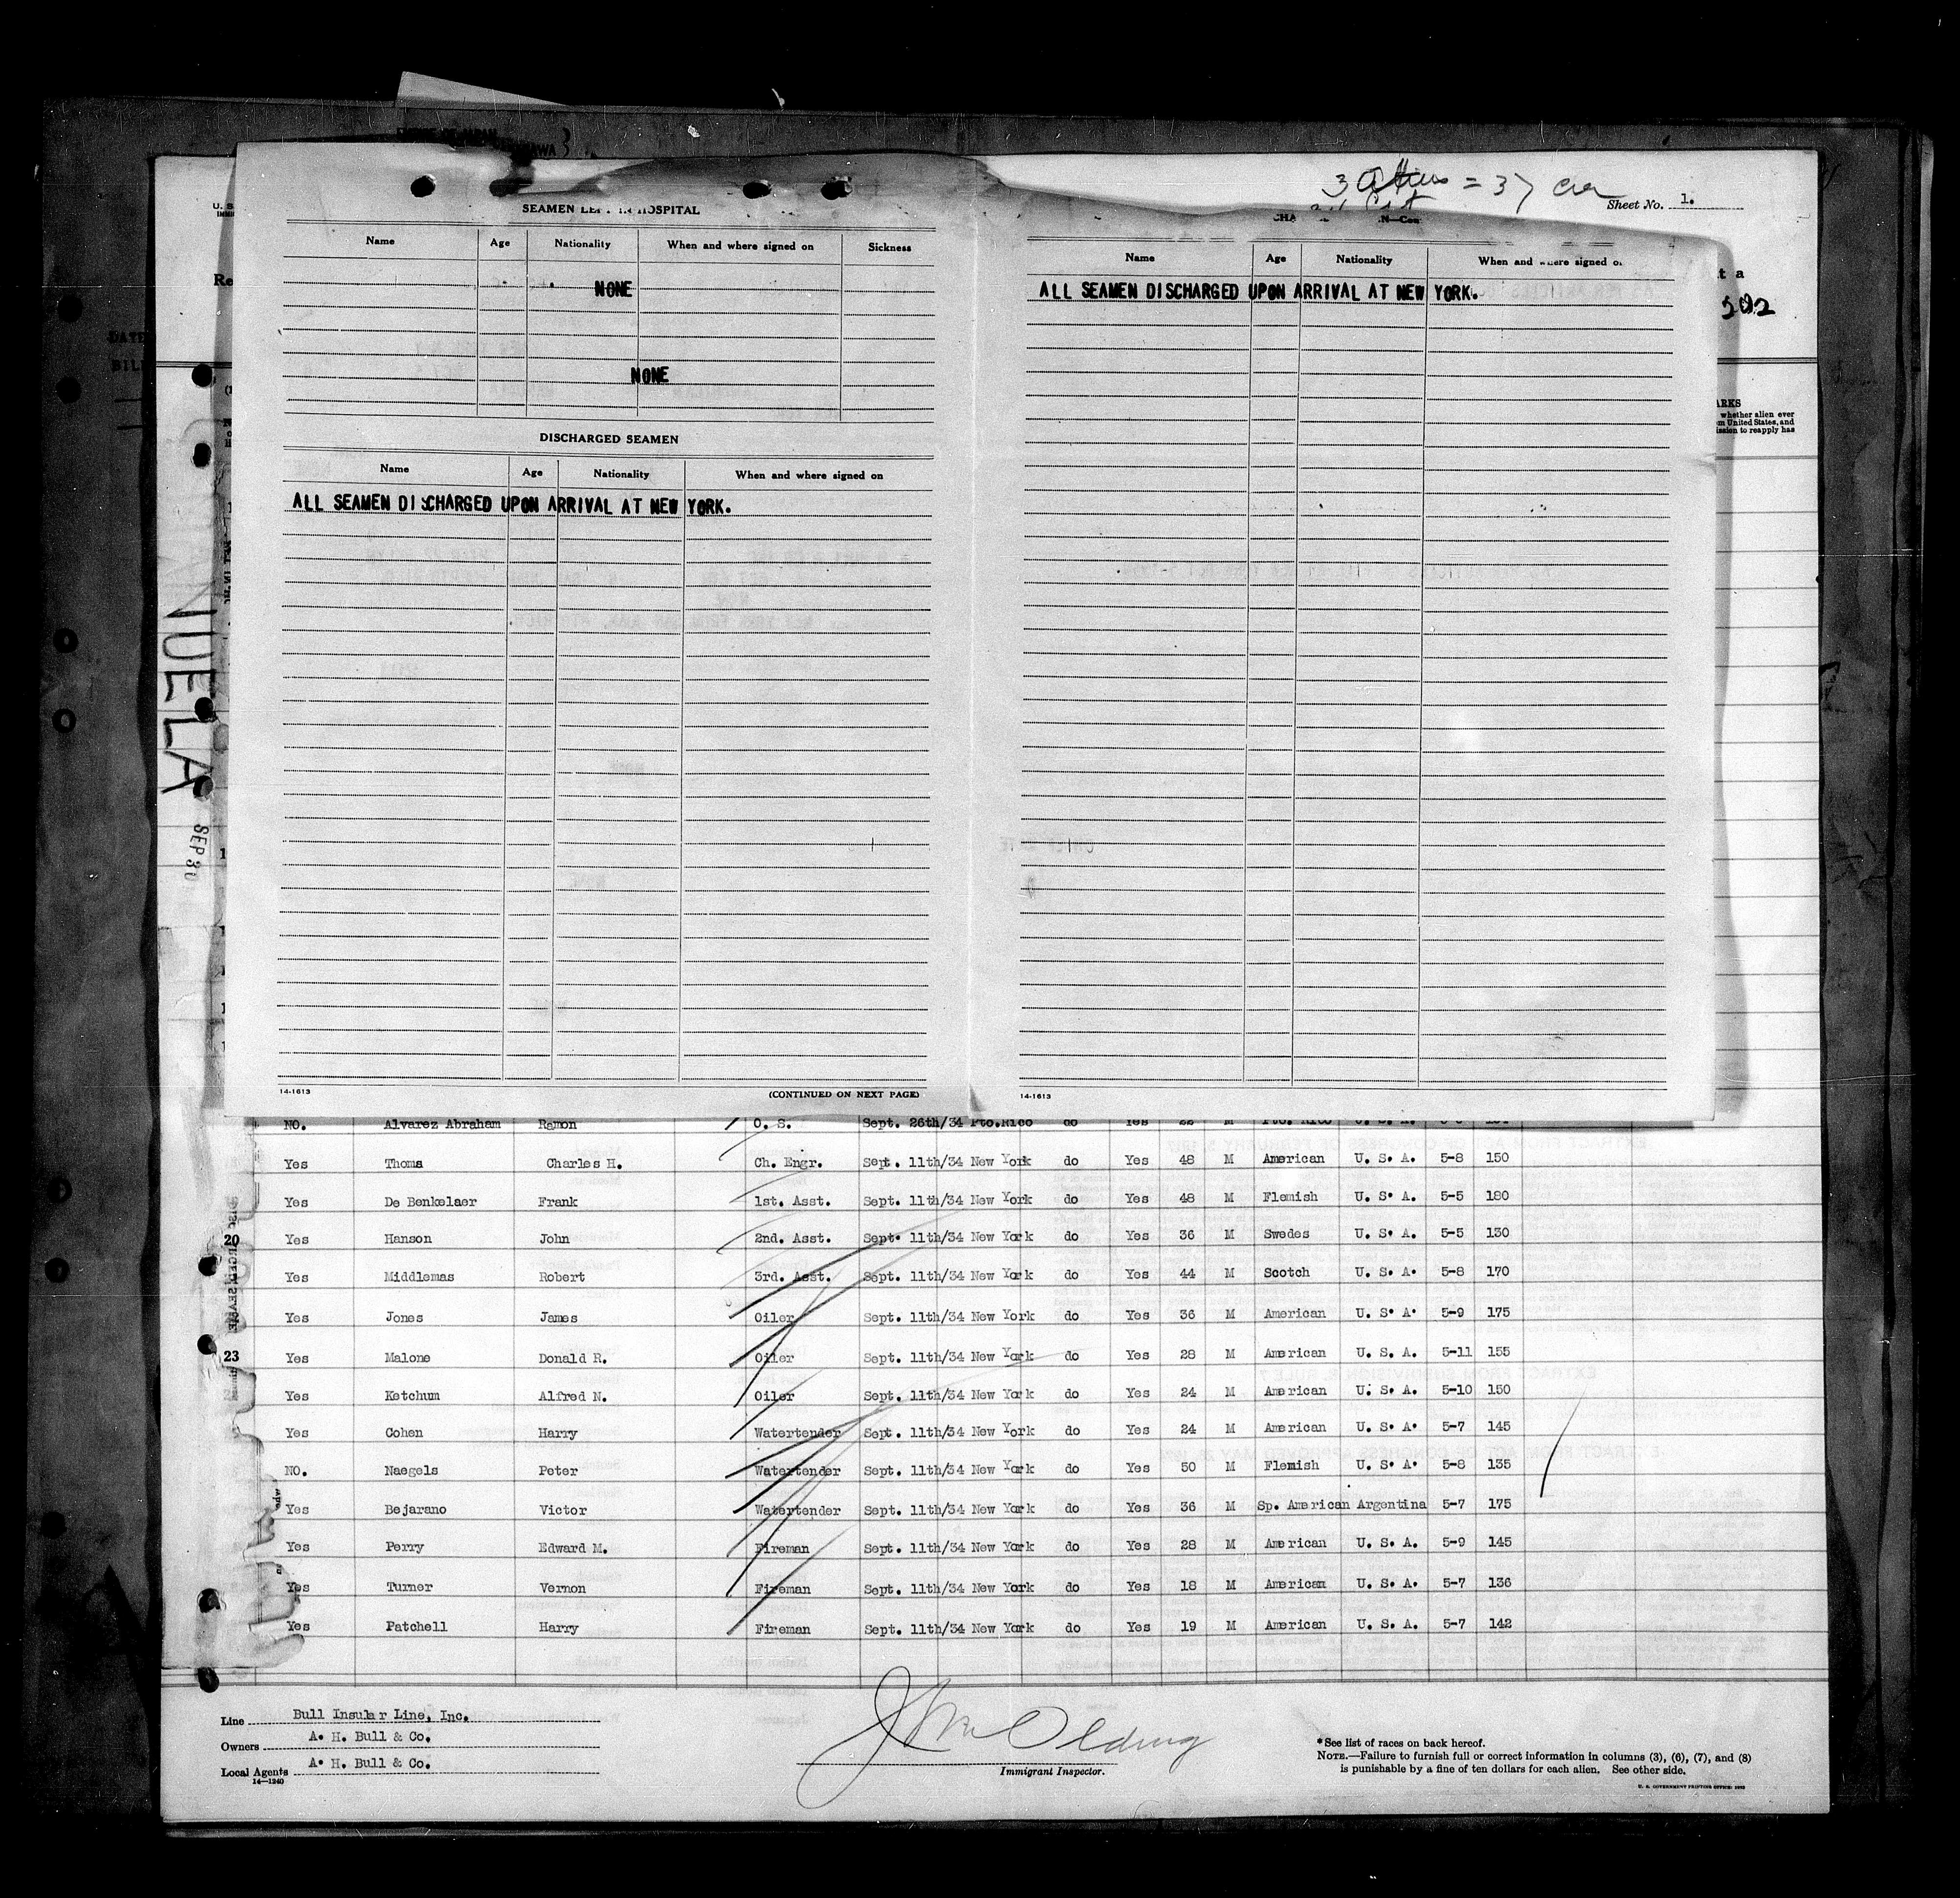 Sheet No. 1.
SEAMEN LEFT IN HOSPITAL
Name Age Nationality When and where signed on Sickness
NONE
NONE
DISCHARGED SEAMEN
Name Age Nationality When and where signed on
ALL SEAMEN DISCHARGED UPON ARRIVAL AT NEW YORK.
14-1613 (CONTINUED ON NEXT PAGE)
Name Age Nationality When and where signed on
ALL SEAMEN DISCHARGED UPON ARRIVAL AT NEW YORK.
14-1613
NUELA
SEP 30
whether alien ever
United States, and
to reapply has
NO. Alvarez Abraham Ramon O. S. Sept. 26th/34 Pto.Rico do Yes 22 M Pto. Rico U. S. A.
Yes Thoms Charles H. Ch. Engr. Sept. 11th/34 New York do Yes 48 M American U. S. A. 5-8 150
Yes De Benkelaer Frank 1st. Asst. Sept. 11th/34 New York do Yes 48 M Flemish U. S. A. 5-5 180
20 Yes Hanson John 2nd. Asst. Sept. 11th/34 New York do Yes 36 M Swedes U. S. A. 5-5 130
Yes Middlemas Robert 3rd. Asst. Sept. 11th/34 New York do Yes 44 M Scotch U. S. A. 5-8 170
Yes Jones James Oiler Sept. 11th/34 New York do Yes 36 M American U. S. A. 5-9 175
23 Yes Malone Donald R. Oiler Sept. 11th/34 New York do Yes 28 M American U. S. A. 5-11 155
Yes Ketchum Alfred N. Oiler Sept. 11th/34 New York do Yes 24 M American U. S. A. 5-10 150
Yes Cohen Harry Watertender Sept. 11th/34 New York do Yes 24 M American U. S. A. 5-7 145
NO. Naegels Peter Watertender Sept. 11th/34 New York do Yes 50 M Flemish U. S. A. 5-8 135
Yes Bejarano Victor Watertender Sept. 11th/34 New York do Yes 36 M Sp. American Argentina 5-7 175
Yes Perry Edward M. Fireman Sept. 11th/34 New York do Yes 28 M American U. S. A. 5-9 145
Yes Turner Vernon Fireman Sept. 11th/34 New York do Yes 18 M American U. S. A. 5-7 136
Yes Patchell Harry Fireman Sept. 11th/34 New York do Yes 19 M American U. S. A. 5-7 142
Line Bull Insular Line, Inc.
Owners A. H. Bull & Co.
Local Agents A. H. Bull & Co.
14-1240
Immigrant Inspector.
*See list of races on back hereof.
NOTE.—Failure to furnish full or correct information in columns (3), (6), (7), and (8)
is punishable by a fine of ten dollars for each alien. See other side.